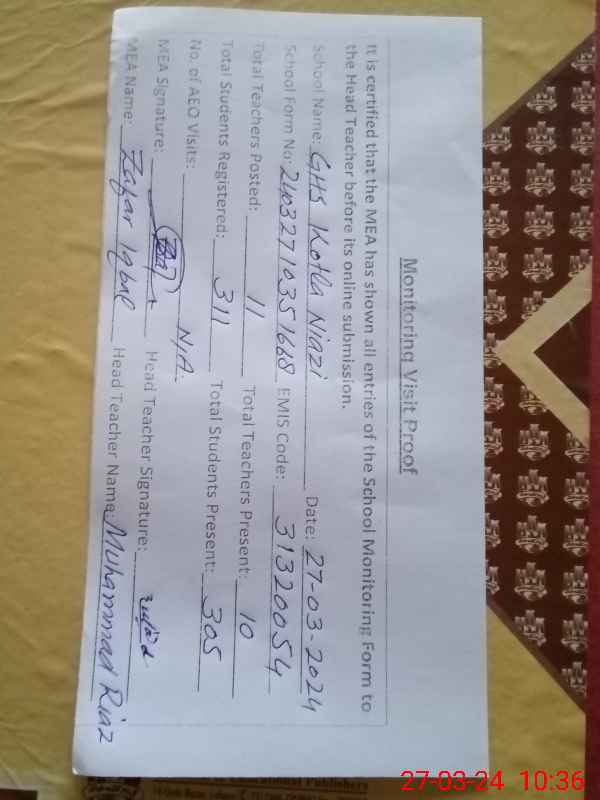 Monitoring Visit Proof
It is certified that the MEA has shown all entries of the School Monitoring Form to
the Head Teacher before its online submission.
School Name: GHS Kotla Niazi Date: 27-03-2024
School Form No: 24032710351668 EMIS Code: 31320054
Total Teachers Posted: 11 Total Teachers Present: 10
Total Students Registered: 311 Total Students Present: 305
No. of AEO Visits: N.A.
MEA Signature: Head Teacher Signature:
MEA Name: Zafar Iqbal Head Teacher Name: Muhammad Riaz
Educational Publishers
27-03-24 10:36